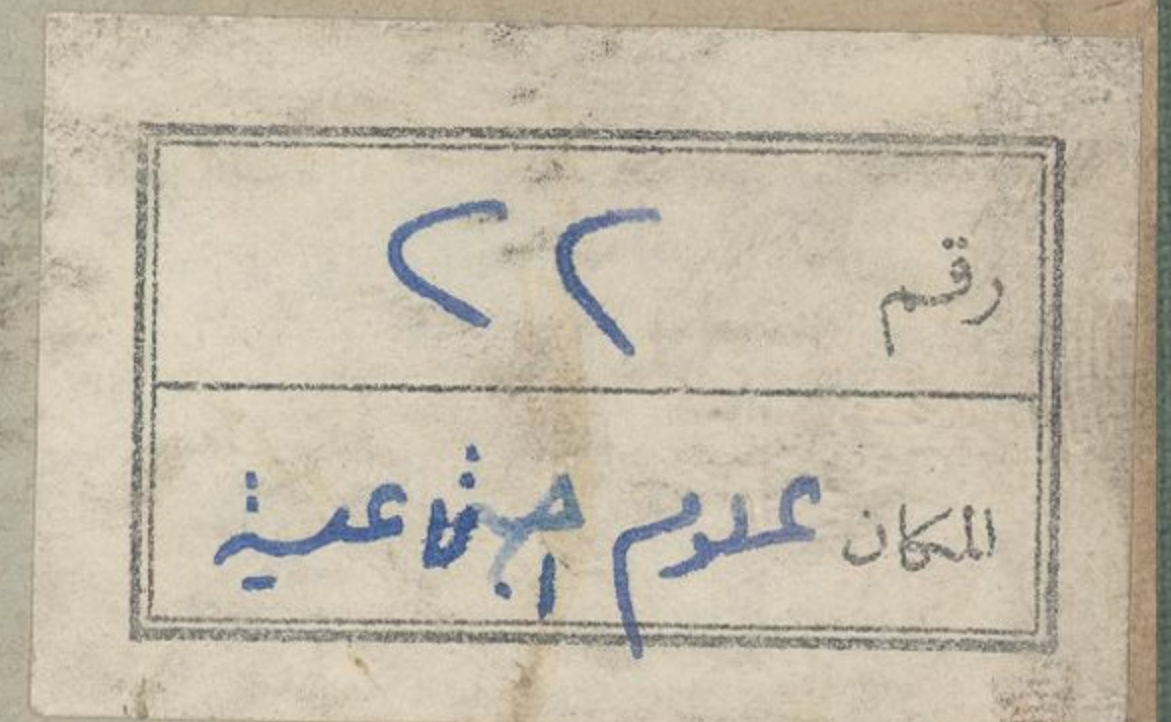 رقم ٢٢
المكان علوم اجتماعية